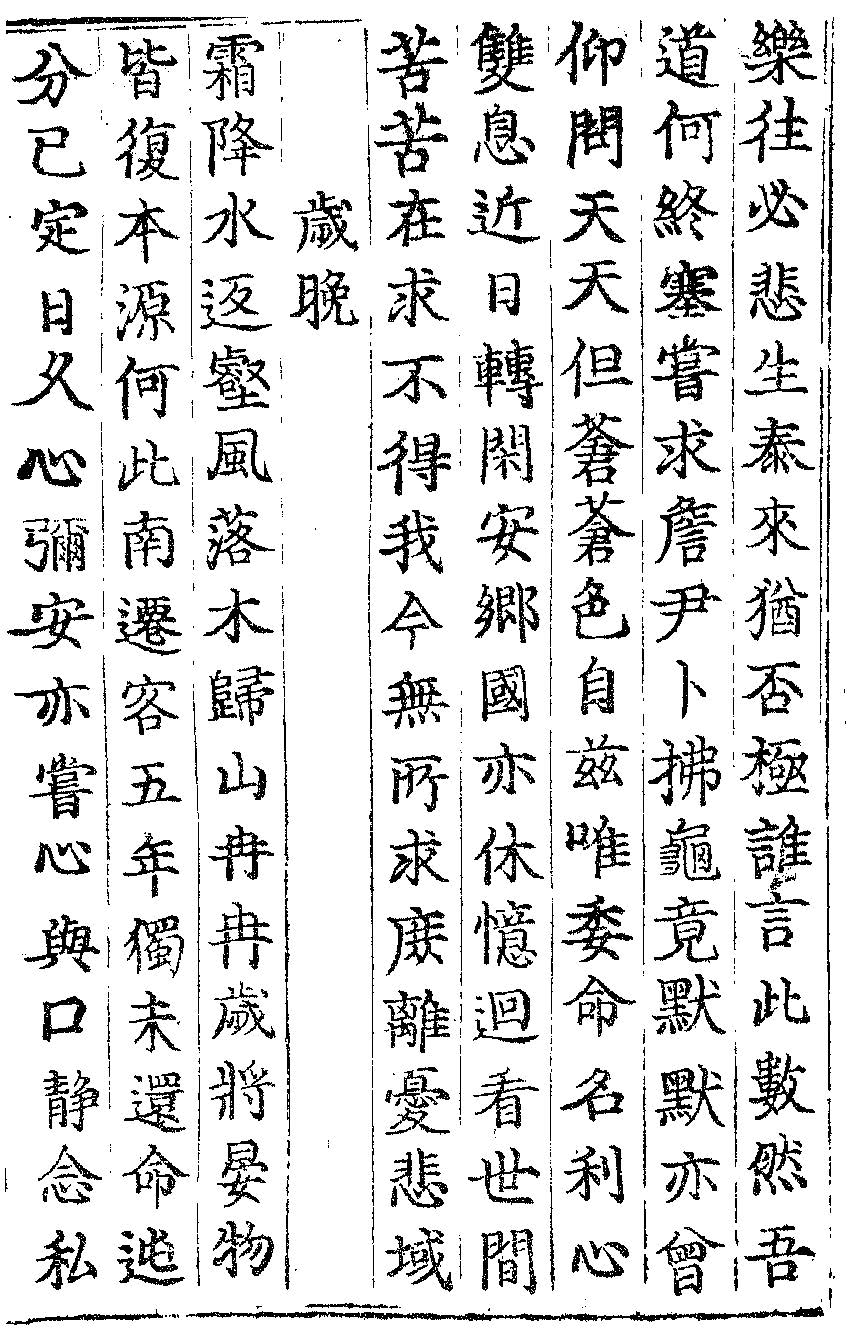 樂往必悲生泰來猶否極誰言此數然吾
道何終塞嘗求詹尹卜拂龜竟默默亦曾
仰問天天但蒼蒼色自兹唯委命名利心
雙息近日轉閑安郷國亦休憶迴看世間
苦苦在求不得我今無所求庶離憂悲域
歲晚
霜降水返壑風落木歸山冉冉歲將晏物
皆復本源何此南遷客五年獨未還命迍
分已定日久心彌安亦嘗心與口静念私